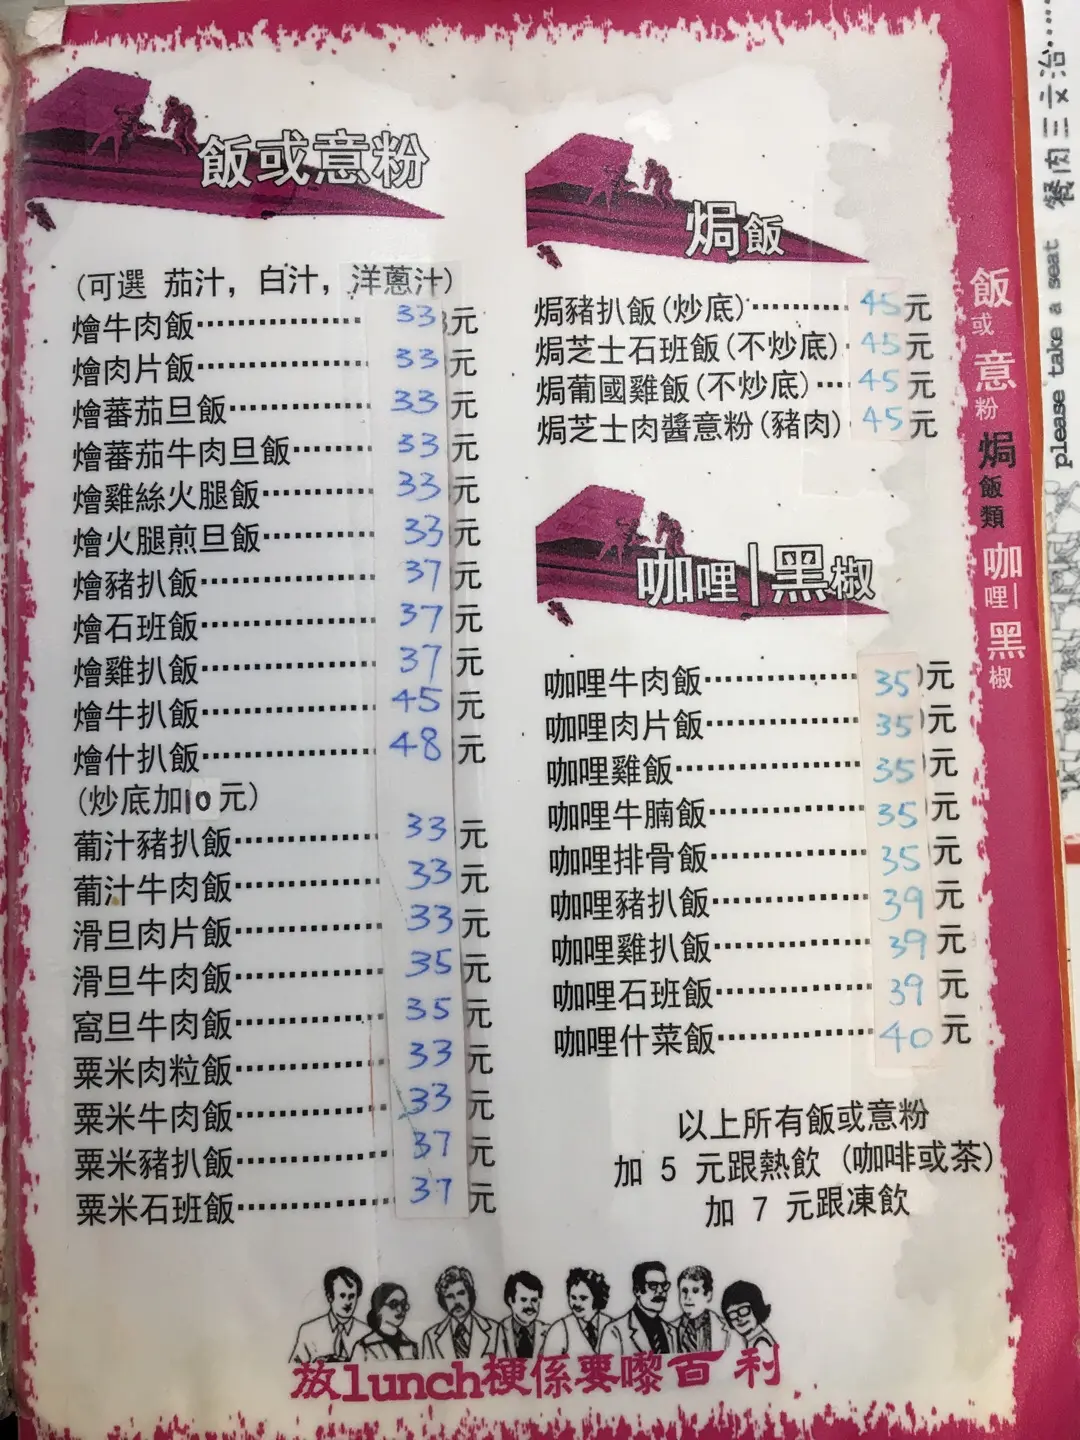 飯或意粉
(可選 茄汁，白汁，洋蔥汁)
燴牛肉飯 33元
燴肉片飯 33元
燴蕃茄旦飯 33元
燴蕃茄牛肉旦飯 33元
燴雞絲火腿飯 33元
燴火腿煎旦飯 33元
燴豬扒飯 37元
燴石班飯 37元
燴雞扒飯 37元
燴牛扒飯 45元
燴什扒飯 48元
(炒底加10元)
葡汁豬扒飯 33元
葡汁牛肉飯 33元
滑旦肉片飯 33元
滑旦牛肉飯 35元
窩旦牛肉飯 35元
粟米肉粒飯 33元
粟米牛肉飯 33元
粟米豬扒飯 37元
粟米石班飯 37元
焗飯
焗豬扒飯(炒底) 45元
焗芝士石班飯(不炒底) 45元
焗葡國雞飯(不炒底) 45元
焗芝士肉醬意粉(豬肉) 45元
咖哩|黑椒
咖哩牛肉飯 35元
咖哩肉片飯 35元
咖哩雞飯 35元
咖哩牛腩飯 35元
咖哩排骨飯 35元
咖哩豬扒飯 39元
咖哩雞扒飯 39元
咖哩石班飯 39元
咖哩什菜飯 40元
以上所有飯或意粉
加 5 元跟熱飲 (咖啡或茶)
加 7 元跟凍飲
放lunch梗係要嚟百利
飯或意粉 焗飯類 咖哩|黑椒
please take a seat
餐肉三文治